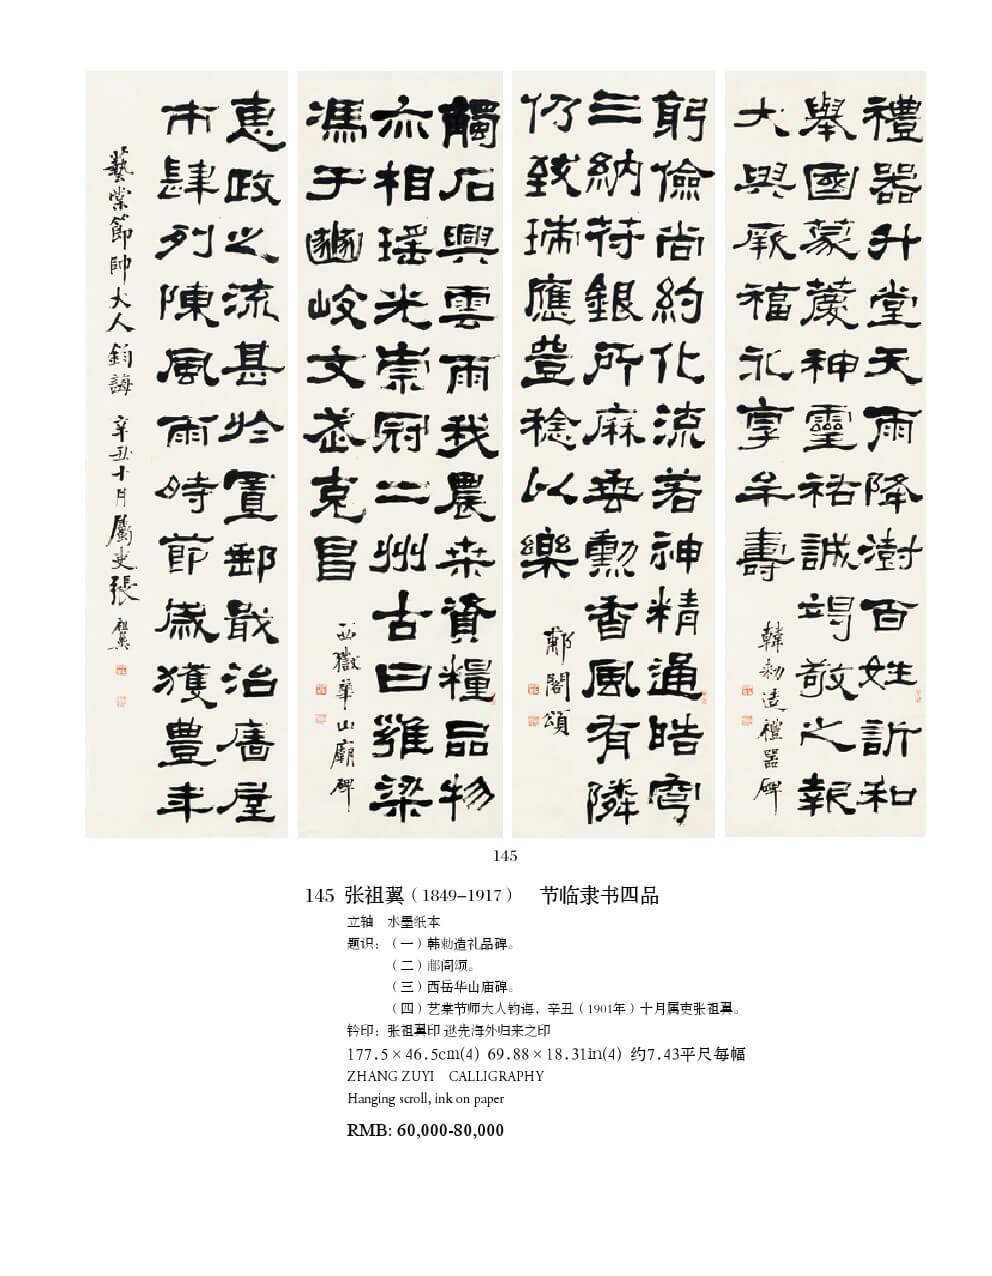 禮器升堂天雨降澍百姓訢和
舉國蒙慶神靈祐誠竭敬之報
大與厥福永享牟壽
韓勑造禮器碑
躬儉尚約化流若神精通皓穹
三納苻銀所麻垂勳香風有隣
仍致瑞應豊稔以樂
郙閣頌
觸石興雲雨我農桒資糧品物
亦相瑶光崇冠二州古曰雍梁
馮于豳岐文武克昌
西嶽華山廟碑
惠政之流甚於置郵戢治廧屋
市肆列陳風雨時節歲獲豊年
藝棠節帥大人鈞誨 辛丑十月屬吏張祖翼
145
145 张祖翼（1849-1917） 节临隶书四品
立轴 水墨纸本
题识：（一）韩勑造礼品碑。
（二）郙阁颂。
（三）西岳华山庙碑。
（四）艺棠节师大人钧诲，辛丑（1901年）十月属吏张祖翼。
钤印：张祖翼印 逖先海外归来之印
177.5×46.5cm(4) 69.88×18.31in(4) 约7.43平尺每幅
ZHANG ZUYI CALLIGRAPHY
Hanging scroll, ink on paper
RMB: 60,000-80,000